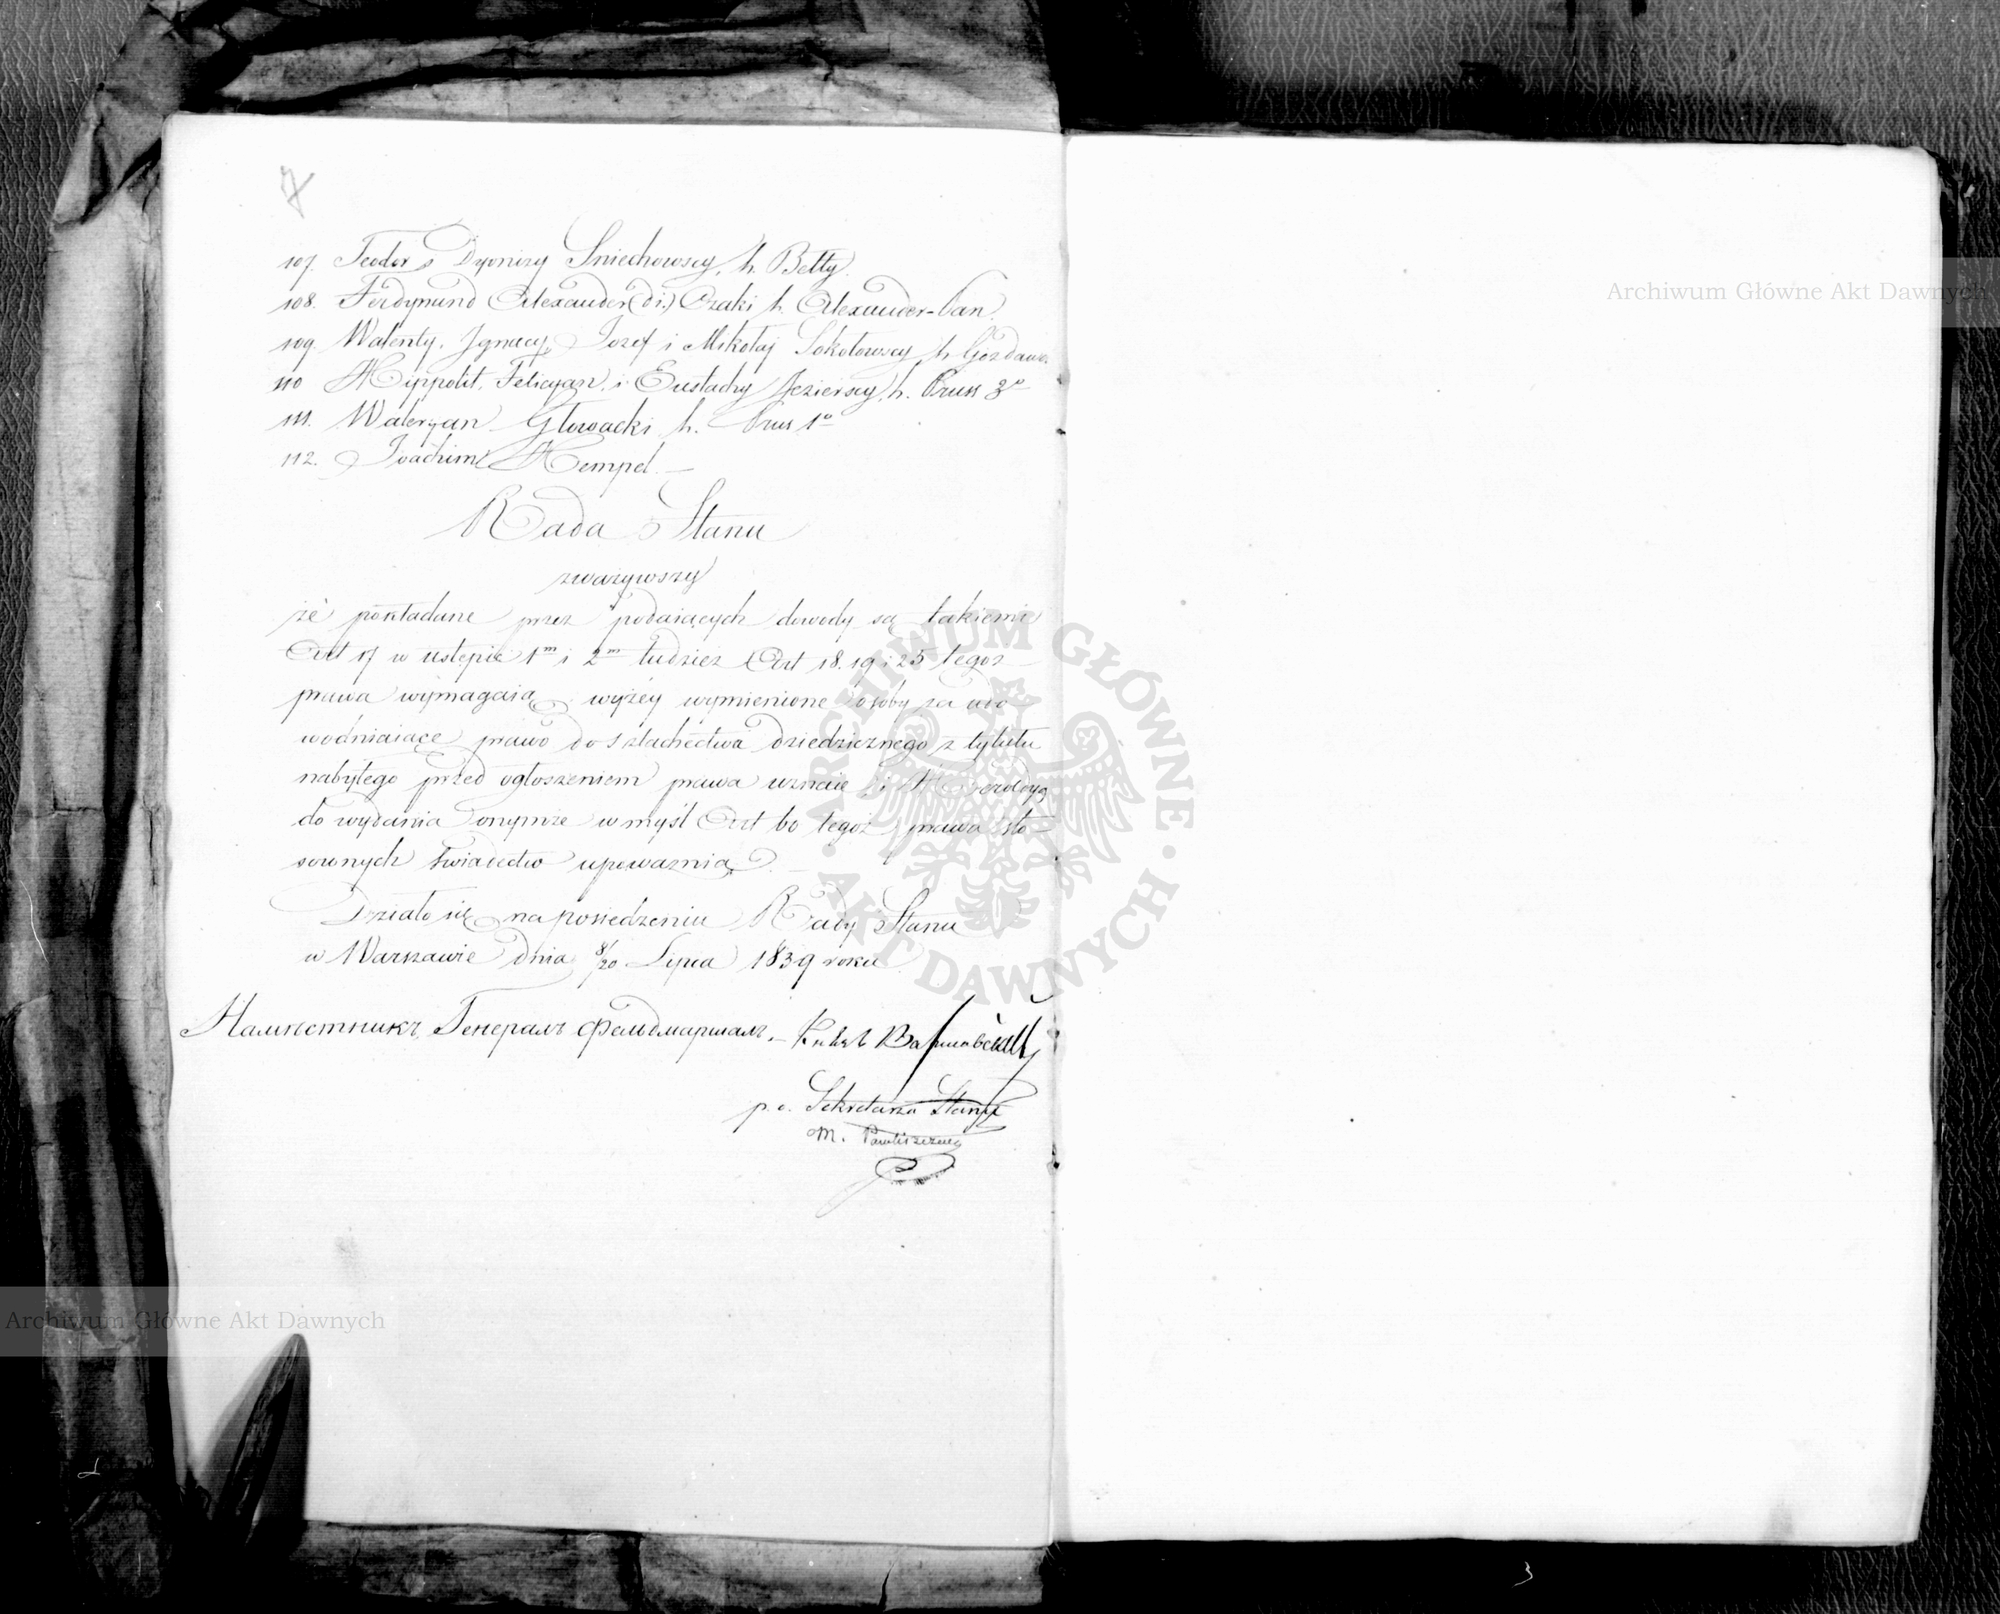 7
107. Teodor i Dyonizy Sniechowscy, h. Bełty.
108. Ferdynund Alexander (di) Czaki h. Alexander-Pan.
109. Walenty, Ignacy, Jozef i Mikołaj Sokołowscy h. Gozdawa.
110 Hippolit, Felicyan, i Eustachy Jezierscy, h. Pruss 3º
111. Waleryan Głowacki h. Prus 1º
112. Joachim Hempel. —
Rada Stanu
zważywszy
że pokładane przez podaiących dowody są takiemi
Art 17 w ustępie 1m i 2m tudzież Art 18. 19 i 25 tegoż
prawa wymagaią, wyżey wymienione osoby za udo-
wodniaiące prawo do szlachectwa dziedzicznego z tytułu
nabytego przed ogłoszeniem prawa uznaie i Heroldyą
do wydania onymże w myśl Art 60 tegoż prawa sto-
sownych świadectw upoważnia. —
Działo się na posiedzeniu Rady Stanu
w Warszawie dnia 8/20 Lipca 1839 roku
Намѣстникъ, Генералъ Фельдмаршалъ, — Князь Варшавскій
p. o. Sekretarza Stanu
M. Pawliszczew
Archiwum Główne Akt Dawnych
ARCHIWUM GŁÓWNE · AKT DAWNYCH ·
Archiwum Główne Akt Dawnych
3